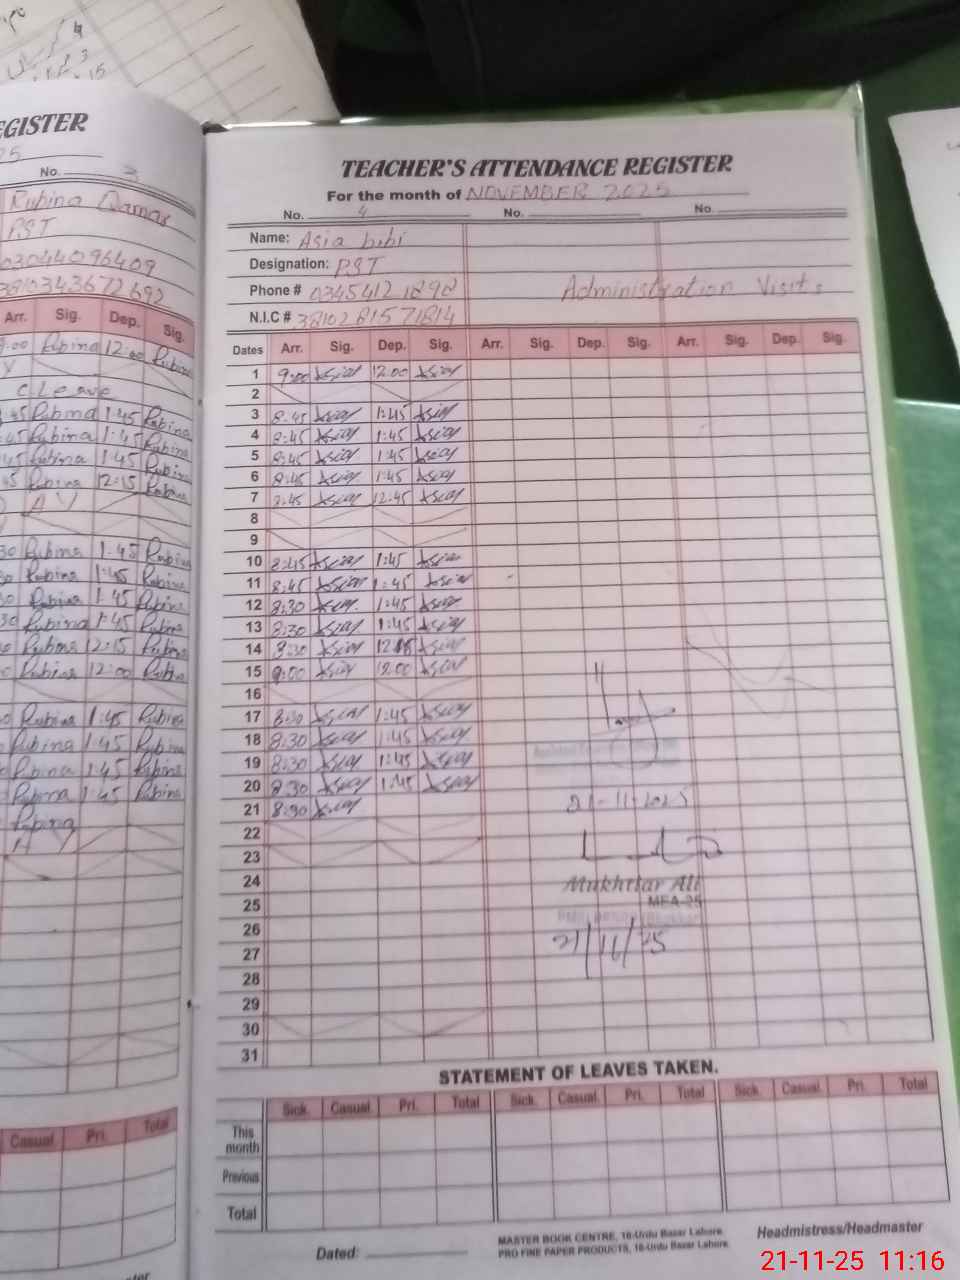 EGISTER
No. 3
Rubina Qamar
PST
03044096409
3810343672692
Arr. Sig. Dep. Sig.
9:00 Rubina 12:00 Rubina
C Leave
45 Rubina 1:45 Rubina
45 Rubina 1:45 Rubina
45 Rubina 1:45 Rubina
45 Rubina 12:15 Rubina
30 Rubina 1:45 Rubina
30 Rubina 1:45 Rubina
30 Rubina 1:45 Rubina
30 Rubina 1:45 Rubina
Rubina 12:15 Rubina
Rubina 12:00 Rubina
Rubina 1:45 Rubina
Rubina 1:45 Rubina
Rubina 1:45 Rubina
Rubina 1:45 Rubina
Rubina
Casual. Pri. Total
TEACHER'S ATTENDANCE REGISTER
For the month of NOVEMBER 2025
No. 4 No. No.
Name: Asia bibi
Designation: PST
Phone # 03454121898 Administration Visits
N.I.C # 3810281571814
Dates Arr. Sig. Dep. Sig. Arr. Sig. Dep. Sig. Arr. Sig. Dep. Sig.
1 9:00 Asia 12:00 Asia
2
3 8:45 Asia 1:45 Asia
4 8:45 Asia 1:45 Asia
5 8:45 Asia 1:45 Asia
6 8:45 Asia 1:45 Asia
7 8:45 Asia 12:45 Asia
8
9
10 8:45 Asia 1:45 Asia
11 8:45 Asia 1:45 Asia
12 8:30 Asia 1:45 Asia
13 8:30 Asia 1:45 Asia
14 8:30 Asia Asia
15 9:00 Asia 12:00 Asia
16
17 8:30 Asia 1:45 Asia
18 8:30 Asia 1:45 Asia
19 8:30 Asia 1:45 Asia
20 8:30 Asia 1:45 Asia
21 8:30 Asia 21-11-2025
22
23
24 Mukhtiar Ali
25 MEA-25
26
27 21/11/25
28
29
30
31
STATEMENT OF LEAVES TAKEN.
Sick. Casual. Pri. Total Sick. Casual. Pri. Total Sick. Casual. Pri. Total
This month
Previous
Total
Dated:
MASTER BOOK CENTRE, 16-Urdu Bazar Lahore.
PRO FINE PAPER PRODUCTS, 16-Urdu Bazar Lahore.
Headmistress/Headmaster
21-11-25 11:16